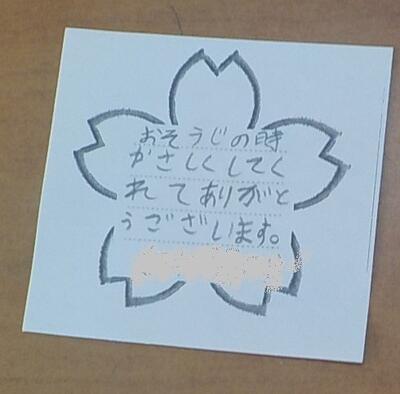 おそうじの時
やさしくしてく
れてありがと
うございます。